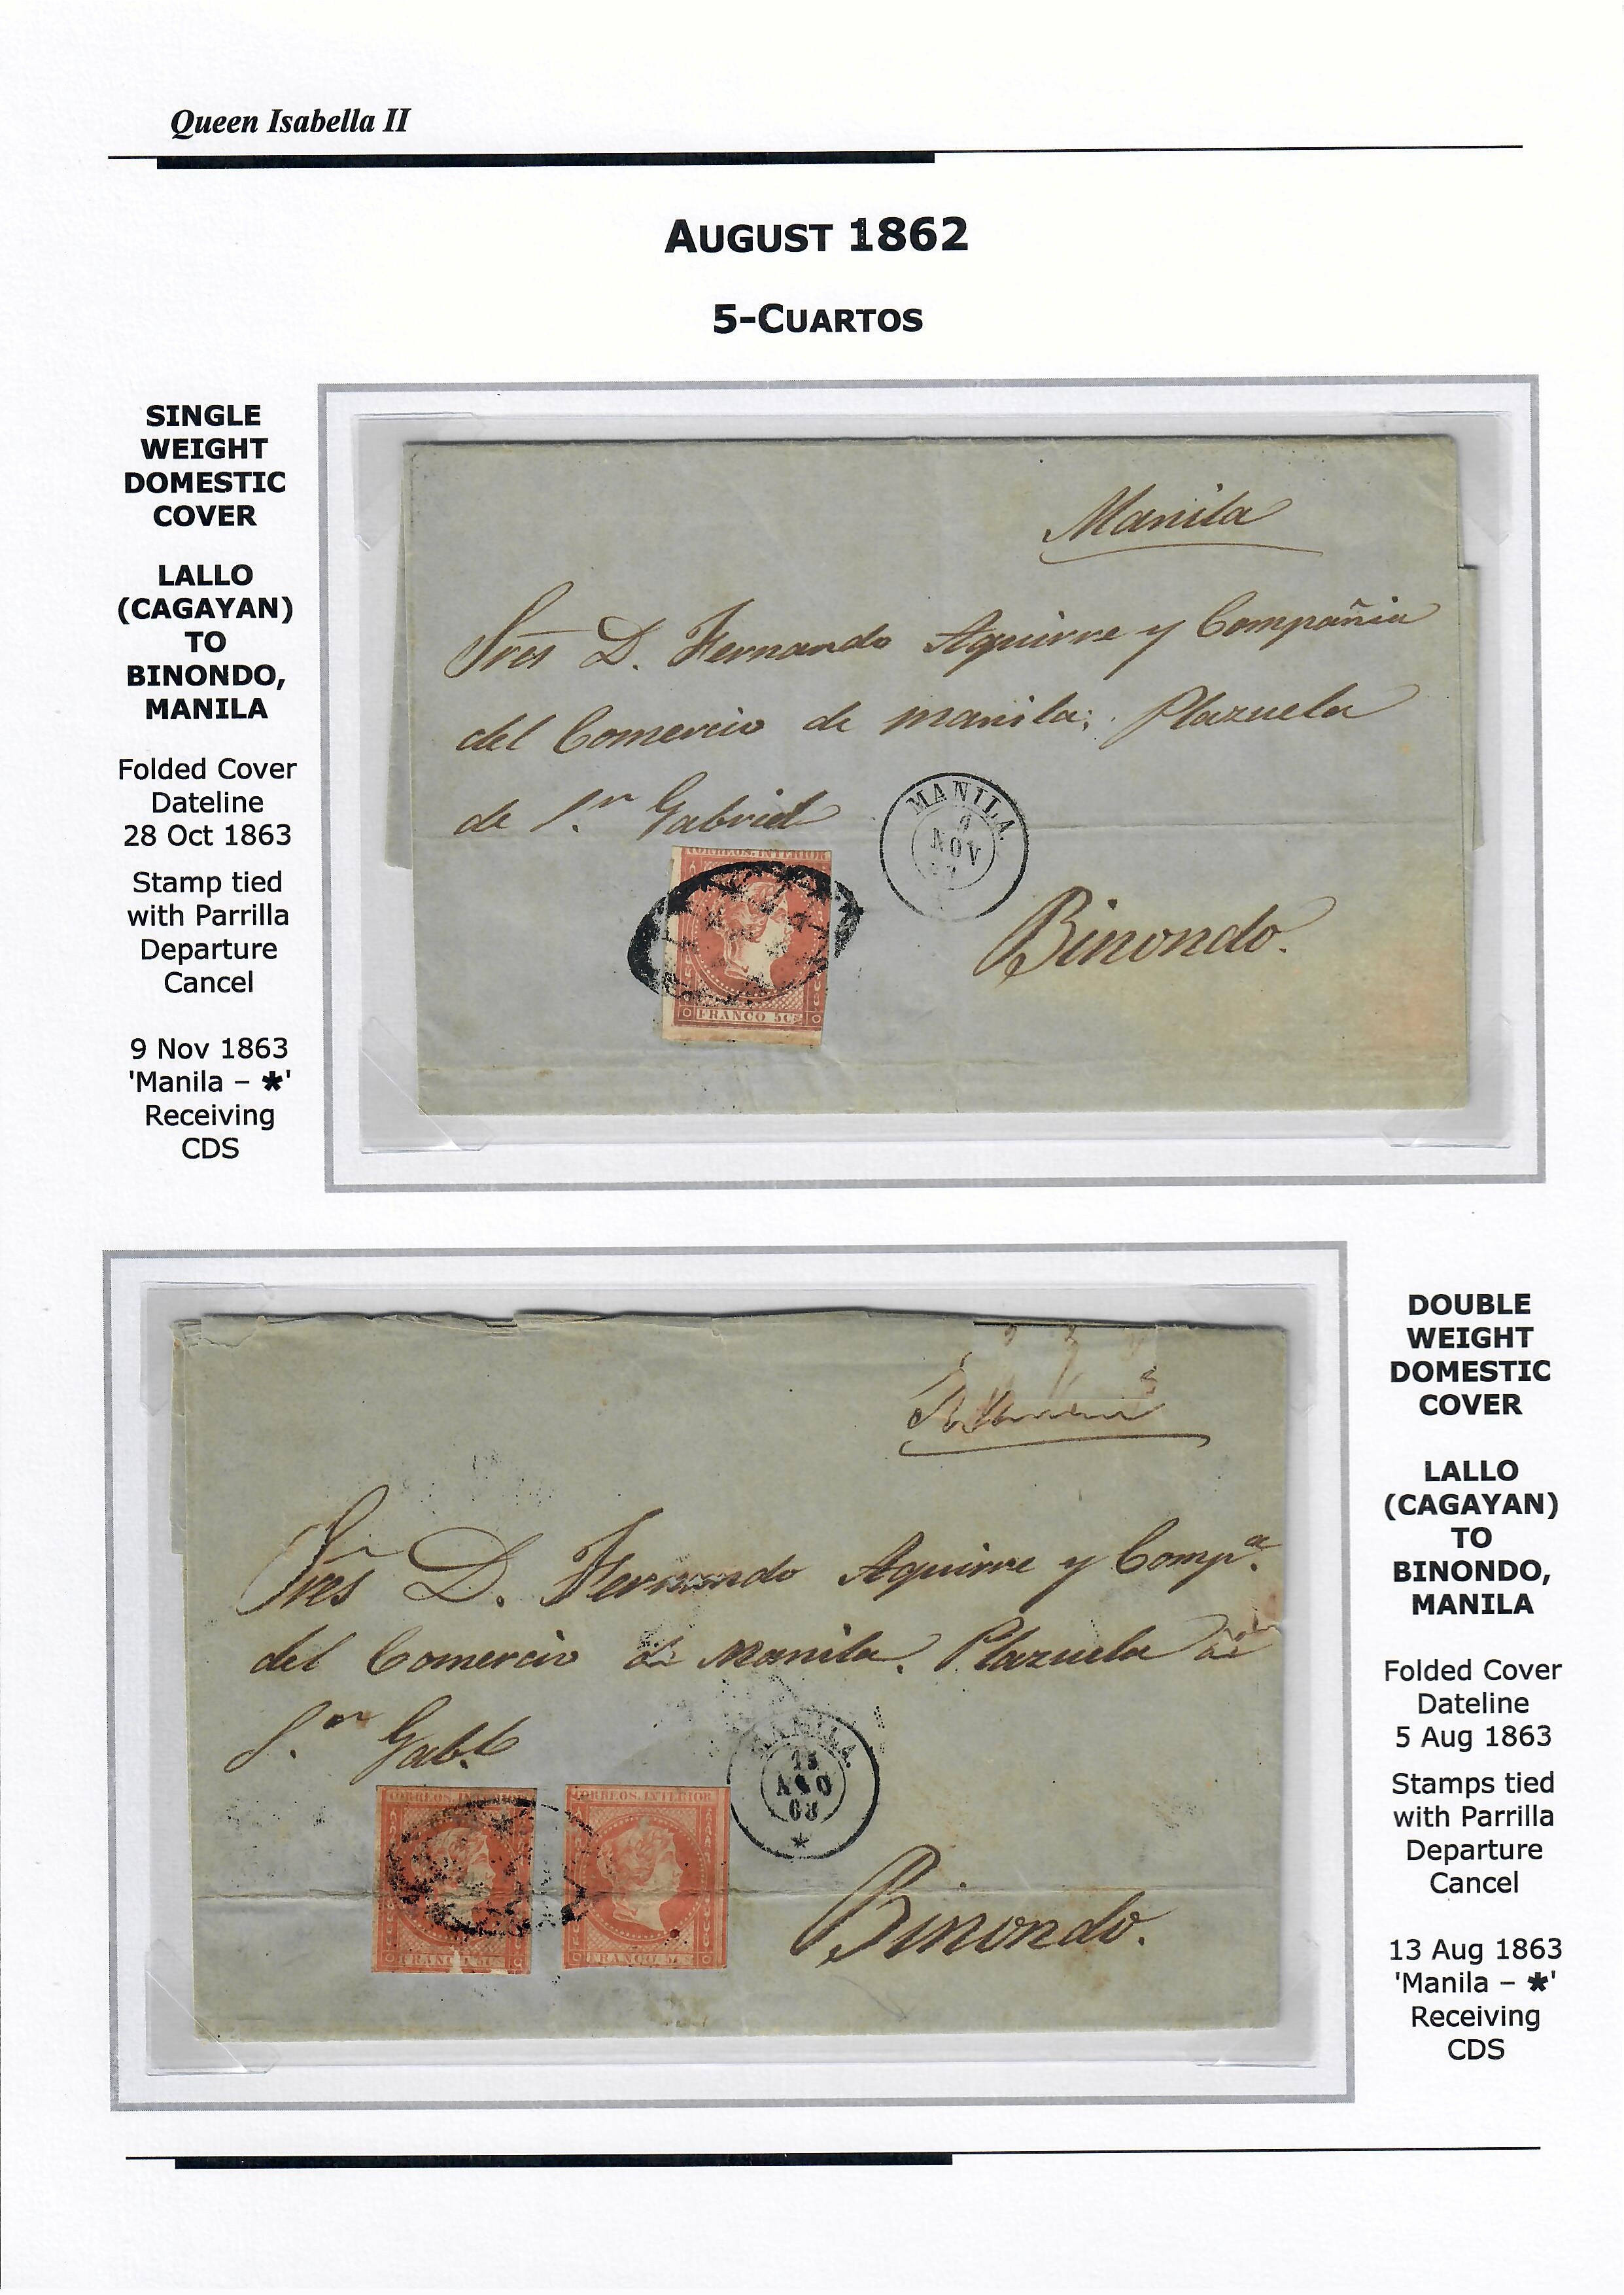 Queen Isabella II
AUGUST 1862
5-CUARTOS
SINGLE
WEIGHT
DOMESTIC
COVER
LALLO
(CAGAYAN)
TO
BINONDO,
MANILA
Folded Cover
Dateline
28 Oct 1863
Stamp tied
with Parrilla
Departure
Cancel
9 Nov 1863
'Manila – *'
Receiving
CDS
Manila
Sres D. Fernando Aguirre y Compañia
del Comercio de manila; Plazuela
de Sn. Gabriel
MANILA
9
NOV
CORREOS. INTERIOR
FRANCO 5Cs
Binondo.
DOUBLE
WEIGHT
DOMESTIC
COVER
LALLO
(CAGAYAN)
TO
BINONDO,
MANILA
Folded Cover
Dateline
5 Aug 1863
Stamps tied
with Parrilla
Departure
Cancel
13 Aug 1863
'Manila – *'
Receiving
CDS
Sres D. Fernando Aguirre y Compa.
del Comercio de Manila. Plazuela de
Sn. Gabl
MANILA
13
AGO
63
*
CORREOS. INTERIOR
FRANCO 5Cs
CORREOS. INTERIOR
FRANCO 5Cs
Binondo.